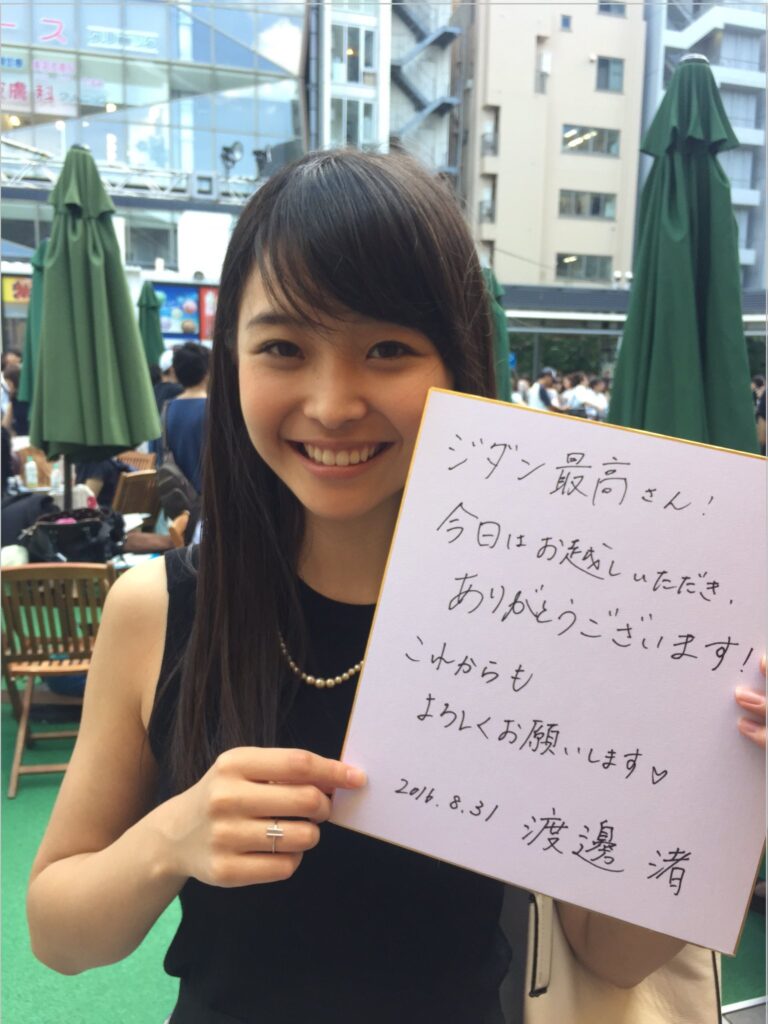 ース
クリニック
皮膚科
ジダン最高さん!
今日はお越しいただき、
ありがとうございます!
これからも
よろしくお願いします♡
2016.8.31 渡邊 渚